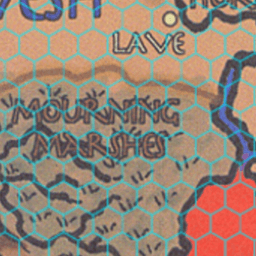 LAVE
MOURNING
MARSHES